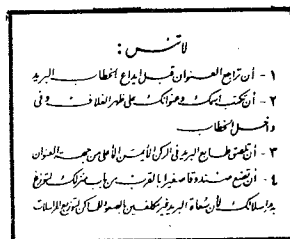 لا تنس :
١ - أن تراجع العنوان قبل ايداع الخطاب البريد
٢ - أن تكتب اسمك وعنوانك على ظهر الغلاف وفى
داخل الخطاب
٣ - أن تلصق طابع البريد فى الركن الأيمن الأعلى من جهة العنوان
٤ - أن تضع صندوقا صغيرا بالقرب من باب منزلك لتوزع
به مراسلاتك لأن سعاة البريد غير مكلفين بالصعود للمساكن لتوزيع المراسلات